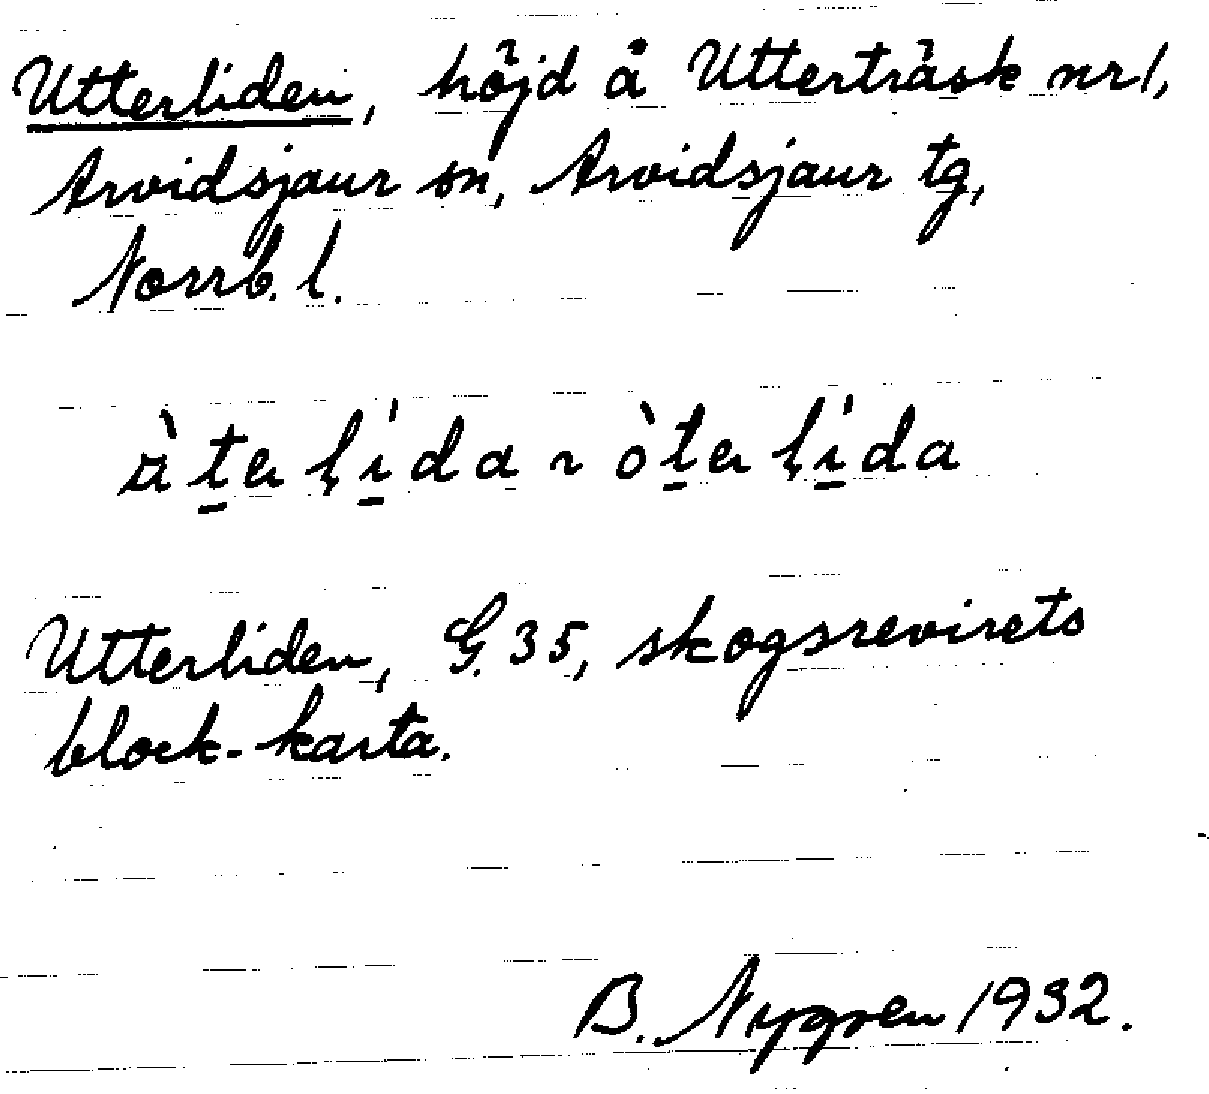 Utterliden, höjd å Utterträsk nr 1,
Arvidsjaur sn, Arvidsjaur tg,
Norrb. l.
Utterliden, G. 35, skogsrevirets
block-karta.
B. Nygren 1932.